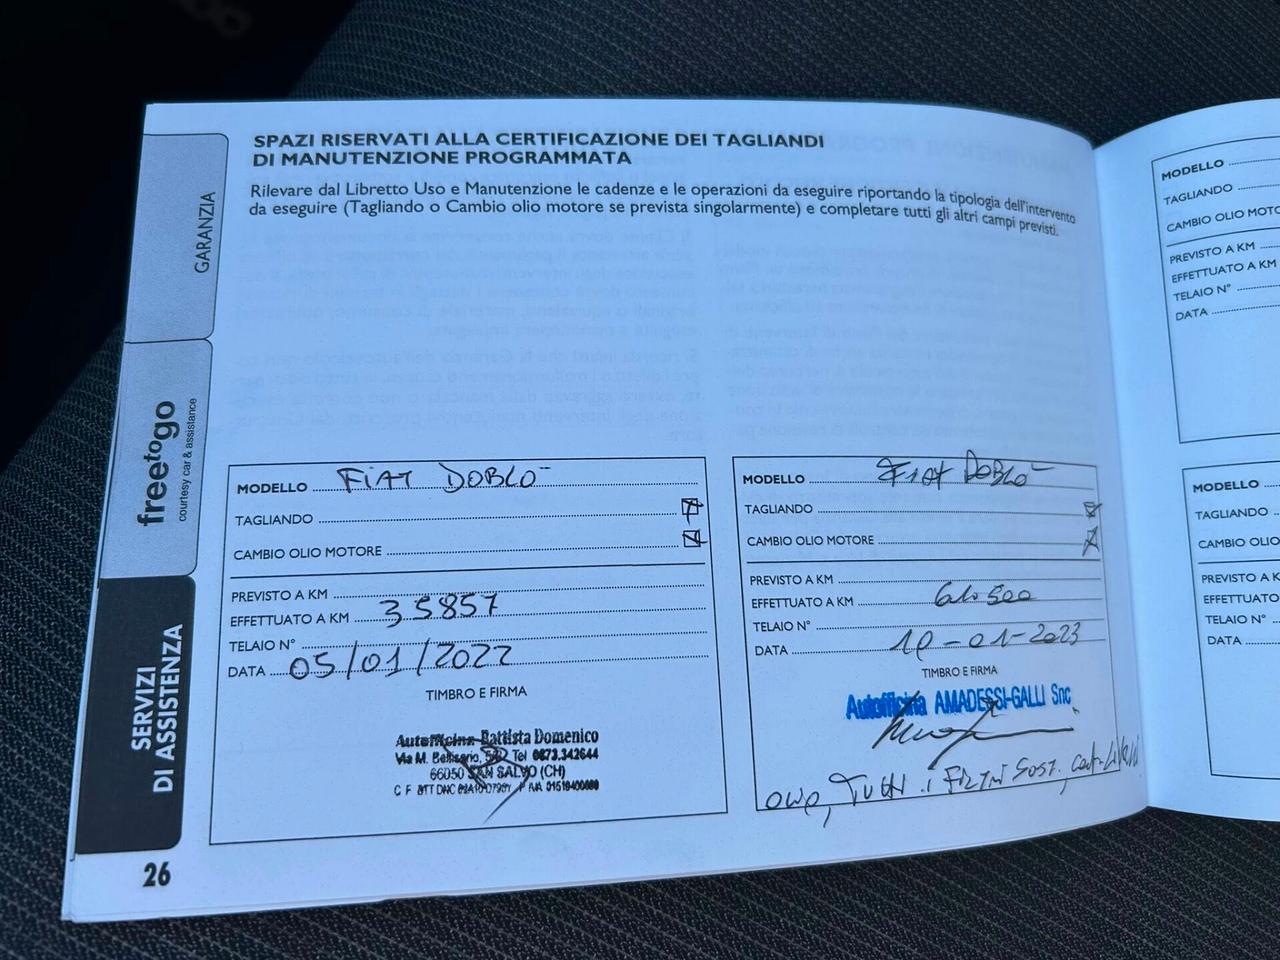 SPAZI RISERVATI ALLA CERTIFICAZIONE DEI TAGLIANDI
DI MANUTENZIONE PROGRAMMATA
Rilevare dal Libretto Uso e Manutenzione le cadenze e le operazioni da eseguire riportando la tipologia dell'intervento
da eseguire (Tagliando o Cambio olio motore se prevista singolarmente) e completare tutti gli altri campi previsti.
GARANZIA
freetogo
courtesy car & assistance
SERVIZI
DI ASSISTENZA
26
MODELLO FIAT DOBLO
TAGLIANDO
CAMBIO OLIO MOTORE
PREVISTO A KM
EFFETTUATO A KM 35857
TELAIO N°
DATA 05/01/2022
TIMBRO E FIRMA
Autofficina Battista Domenico
Via M. Bellisario, Tel 0873.342644
66050 SAN SALVO (CH)
C F
MODELLO FIAT DOBLO
TAGLIANDO
CAMBIO OLIO MOTORE
PREVISTO A KM
EFFETTUATO A KM
TELAIO N°
DATA 10-01-2023
TIMBRO E FIRMA
Autofficina AMADESSI-GALLI Snc
TUTTI i FILTRI SOST.
MODELLO
TAGLIANDO
CAMBIO OLIO MOTO
PREVISTO A KM
EFFETTUATO A KM
TELAIO N°
DATA
MODELLO
TAGLIANDO
CAMBIO OLIO
PREVISTO A K
EFFETTUATO A
TELAIO N°
DATA